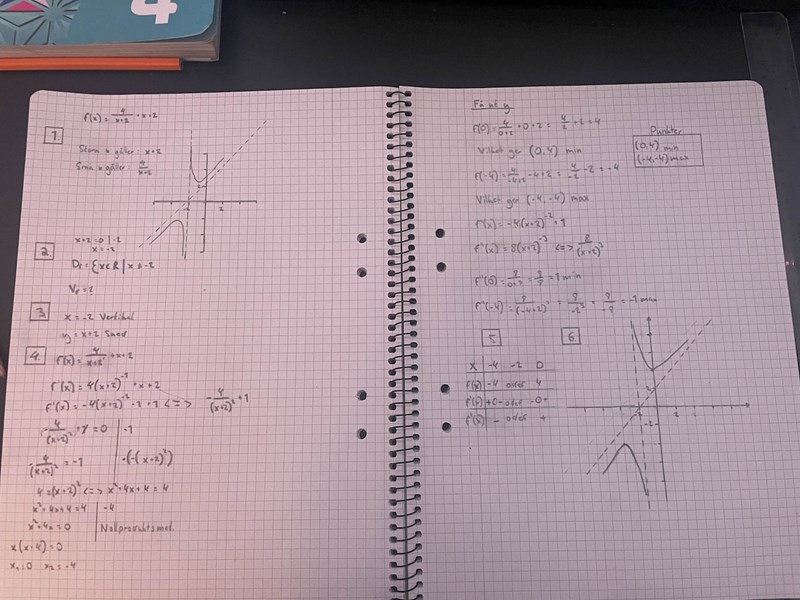 4
f(x) = 4/(x+2) + x+2
1.
Stora x gäller: x+2
Små x gäller: 4/(x+2)
2
2
x+2=0 | -2
x = -2
2.
Df = {x∈R | x ≠ -2
Vf = ?
3.
x = -2 Vertikal
y = x+2 Sned
4.
f(x) = 4/(x+2) + x+2
f(x) = 4(x+2)^-1 + x+2
f'(x) = -4(x+2)^-2 · 1 + 1 <=> -4/(x+2)^2 + 1
-4/(x+2)^2 + 1 = 0 | -1
-4/(x+2)^2 = -1 | ·(-(x+2)^2)
4 = (x+2)^2 <=> x^2+4x+4 = 4
x^2+4x+4 = 4 | -4
x^2+4x = 0 | Nollproduktsmet.
x(x+4) = 0
x1 = 0 x2 = -4
Få ut y
f(0) = 4/(0+2) + 0+2 = 4/2 + 2 = 4
Vilket ger (0,4) min
f(-4) = 4/(-4+2) -4+2 = 4/-2 -2 = -4
Vilket ger (-4,-4) max
Punkter
(0,4) min
(-4,-4) max
f'(x) = -4(x+2)^-2 + 1
f''(x) = 8(x+2)^-3 <=> 8/(x+2)^3
f''(0) = = 1 min
f''(-4) = = -1 max
5
x | -4 -2 0
f(x) | -4 odef 4
f'(x) | +0- odef -0+
f''(x) | - odef +
6.
2
-2